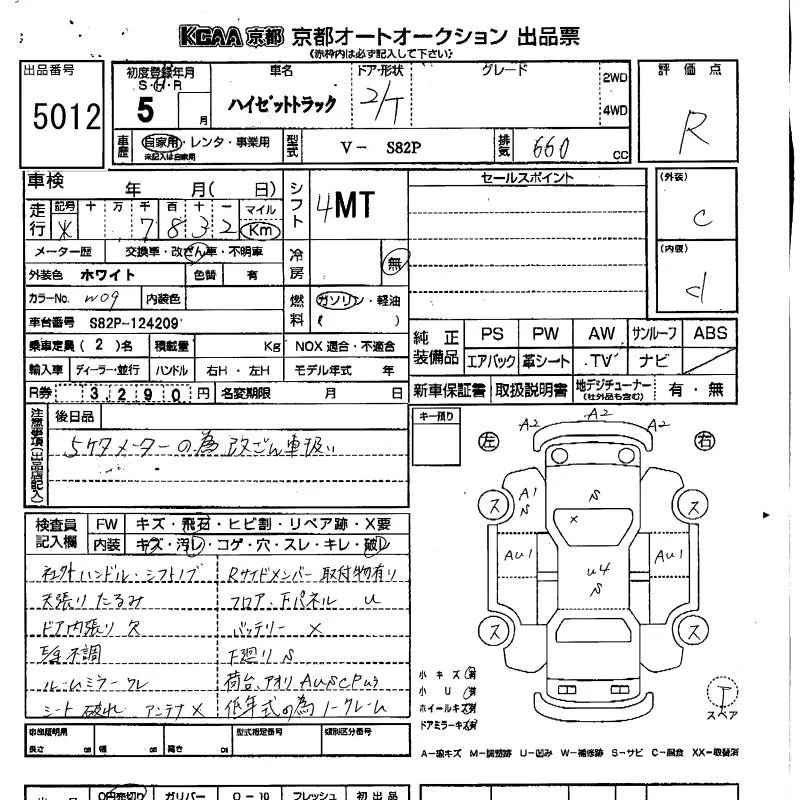 KCAA 京都 京都オートオークション 出品票
(赤枠内は必ず記入して下さい)
出品番号
5012
初度登録年月
S・H・R
5 月
車名
ハイゼットトラック
ドア・形状
2/T
グレード
2WD
4WD
評価点
R
車歴
自家用・レンタ・事業用
未記入は自家用
型式
V- S82P
排気
660 cc
車検 年 月( 日)
走行
記号 十 万 千 百 十 一 マイル
※ 7 8 3 2 Km
シフト
4MT
メーター歴 交換車・改ざん車・不明車
冷房
無
外装色 ホワイト 色替 有
カラーNo. W09 内装色
燃料
ガソリン・軽油
( )
車台番号 S82P-124209
乗車定員 (2)名 積載量 Kg NOX 適合・不適合
輸入車 ディーラー・並行 ハンドル 右H・左H モデル年式 年
R券 3,290円 名変期限 月 日
セールスポイント
(外装)
C
(内装)
d
純正装備品
PS PW AW サンルーフ ABS
エアバック 革シート TV ナビ
新車保証書 取扱説明書 地デジチューナー (社外品も含む) 有・無
注意事項(出品店記入)
後日品
5ケタメーターの為改ざん車扱い
検査員記入欄
FW キズ・飛石・ヒビ割・リペア跡・X要
内装 キズ・汚レ・コゲ・穴・スレ・キレ・破レ
社外ハンドル・シフトノブ Rサイドメンバー取付物有り
天張りたるみ フロア、下パネル U
ドア内張り欠 バッテリー ×
不調 下廻り S
ルームミラークレ 荷台、アオリ AUSCP
シート破れ アンテナ× 低年式の為ノークレーム
車庫証明用
長さ cm 幅 cm 高さ cm
型式指定番号
類別区分番号
キー預り
左
右
A2 A2 A2
A1
S
S
×
U4
S
AU1
AU1
ス
ス
ス
ス
小キズ 有
小U 有
ホイールキズ 有
ドアミラーキズ 有
T
スペア
A-線キズ M-調整跡 U-凹み W-補修跡 S-サビ C-腐食 XX-交換済
0円売切り ガリバー 0-10 フレッシュ 初出品